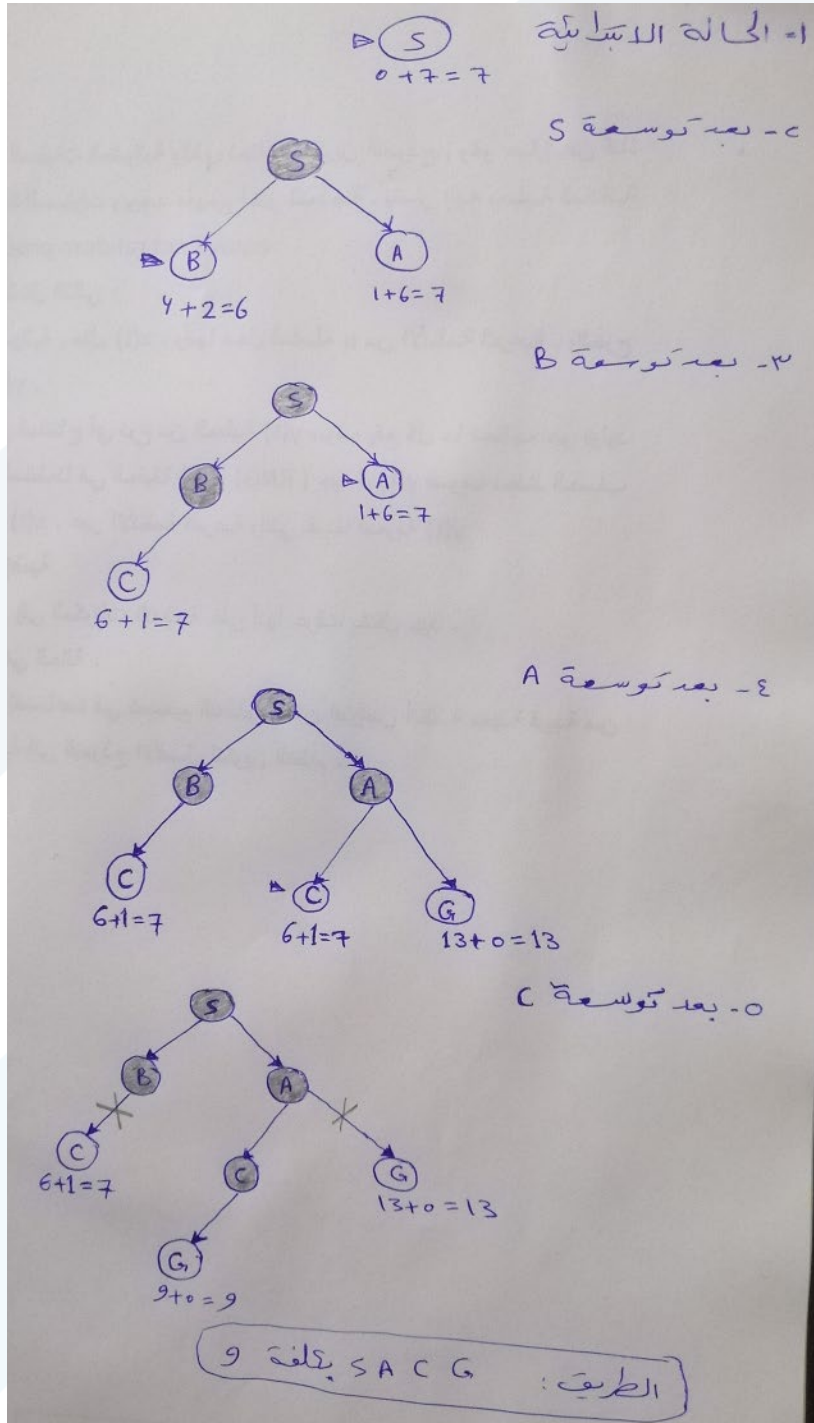 ١- الحالة الابتدائية
S
0+7=7
٢- بعد توسعة S
S
B A
4+2=6 1+6=7
٣- بعد توسعة B
S
B A
1+6=7
C
6+1=7
٤- بعد توسعة A
S
B A
C C G
6+1=7 6+1=7 13+0=13
٥- بعد توسعة C
S
B A
C C G
6+1=7 13+0=13
G
9+0=9
الطريق: S A C G بكلفة 9